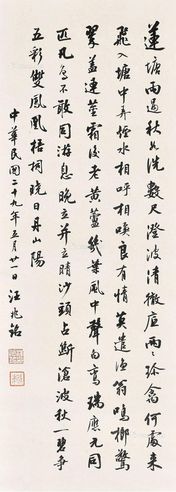 蓮塘雨過秋如洗數尺澄波清徹底兩兩珍禽何處來
飛入塘中弄煙水相呼相喚良有情莫遣漁翁鳴榔驚
翠蓋連莖霜後老黃蘆幾葉風中聲白同
匹凡鳥不敢同游息晚立並立晴沙頭占斷滄波秋一碧爭
五彩雙鳳凰梧桐曉日丹山陽
中華民國二十九年五月廿一日 汪兆銘